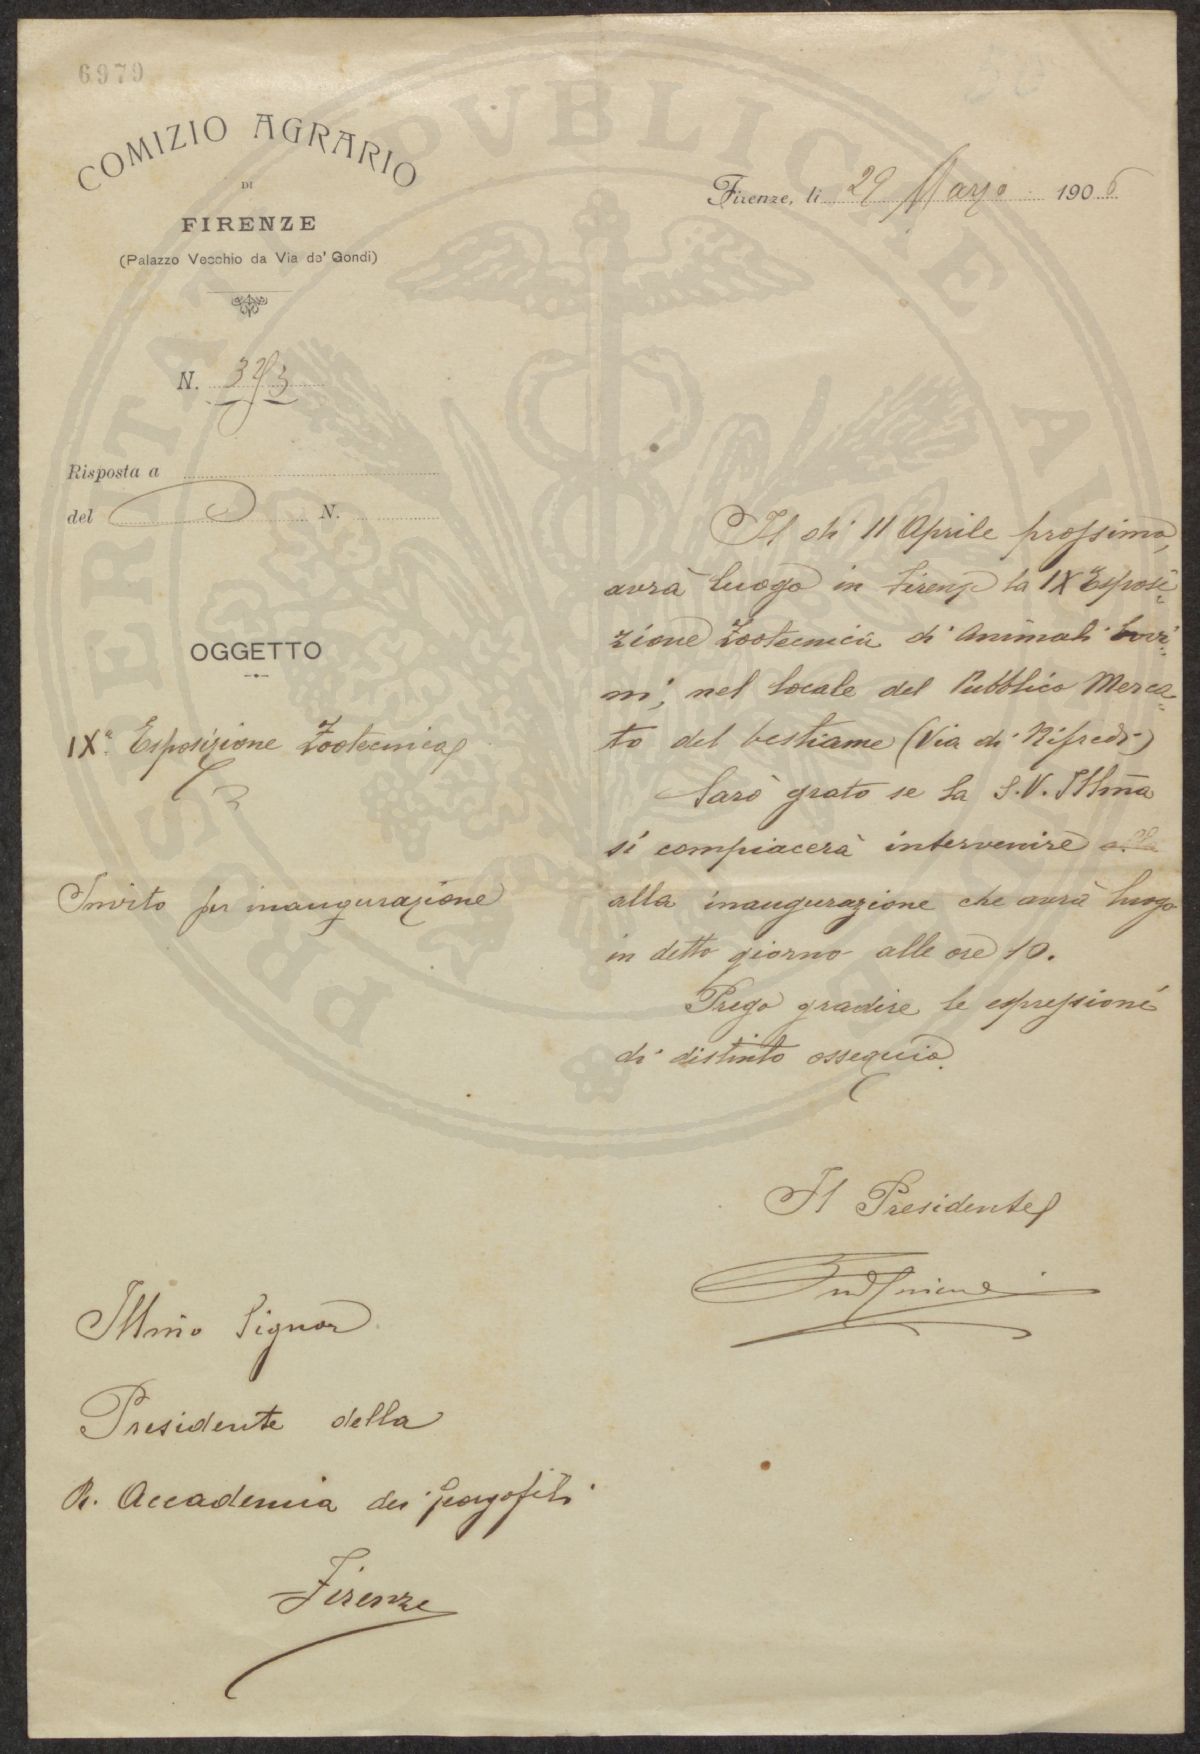 6979
50
COMIZIO AGRARIO
DI
FIRENZE
(Palazzo Vecchio da Via de' Gondi)
Firenze, li 29 Marzo 1906
N.
Risposta a
del N.
OGGETTO
IXª Esposizione Zootecnica
Invito per inaugurazione
Il di 11 Aprile prossimo,
avrà luogo in Firenze la IXª Esposi=
zione Zootecnica di animali bovi=
ni, nel locale del Pubblico Merca=
to del bestiame (Via di Rifredi)
Sarò grato se la S.V. Illma
si compiacerà intervenire alla
alla inaugurazione che avrà luogo
in detto giorno alle ore 10.
Prego gradire le espressioni
di distinto ossequio.
Il Presidente
Illmo Signor
Presidente della
R. Accademia dei Georgofili
Firenze
PROSPERITATI PVBLICAE AVGENDAE